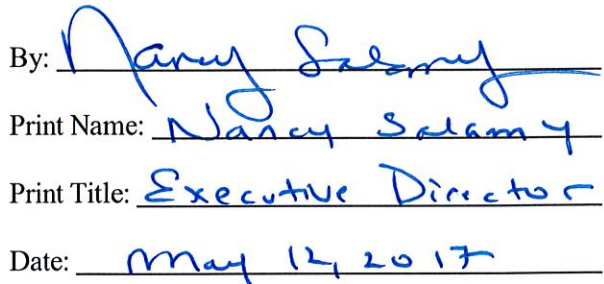 By: Nancy Salamy
Print Name: Nancy Salamy
Print Title: Executive Director
Date: May 12, 2017